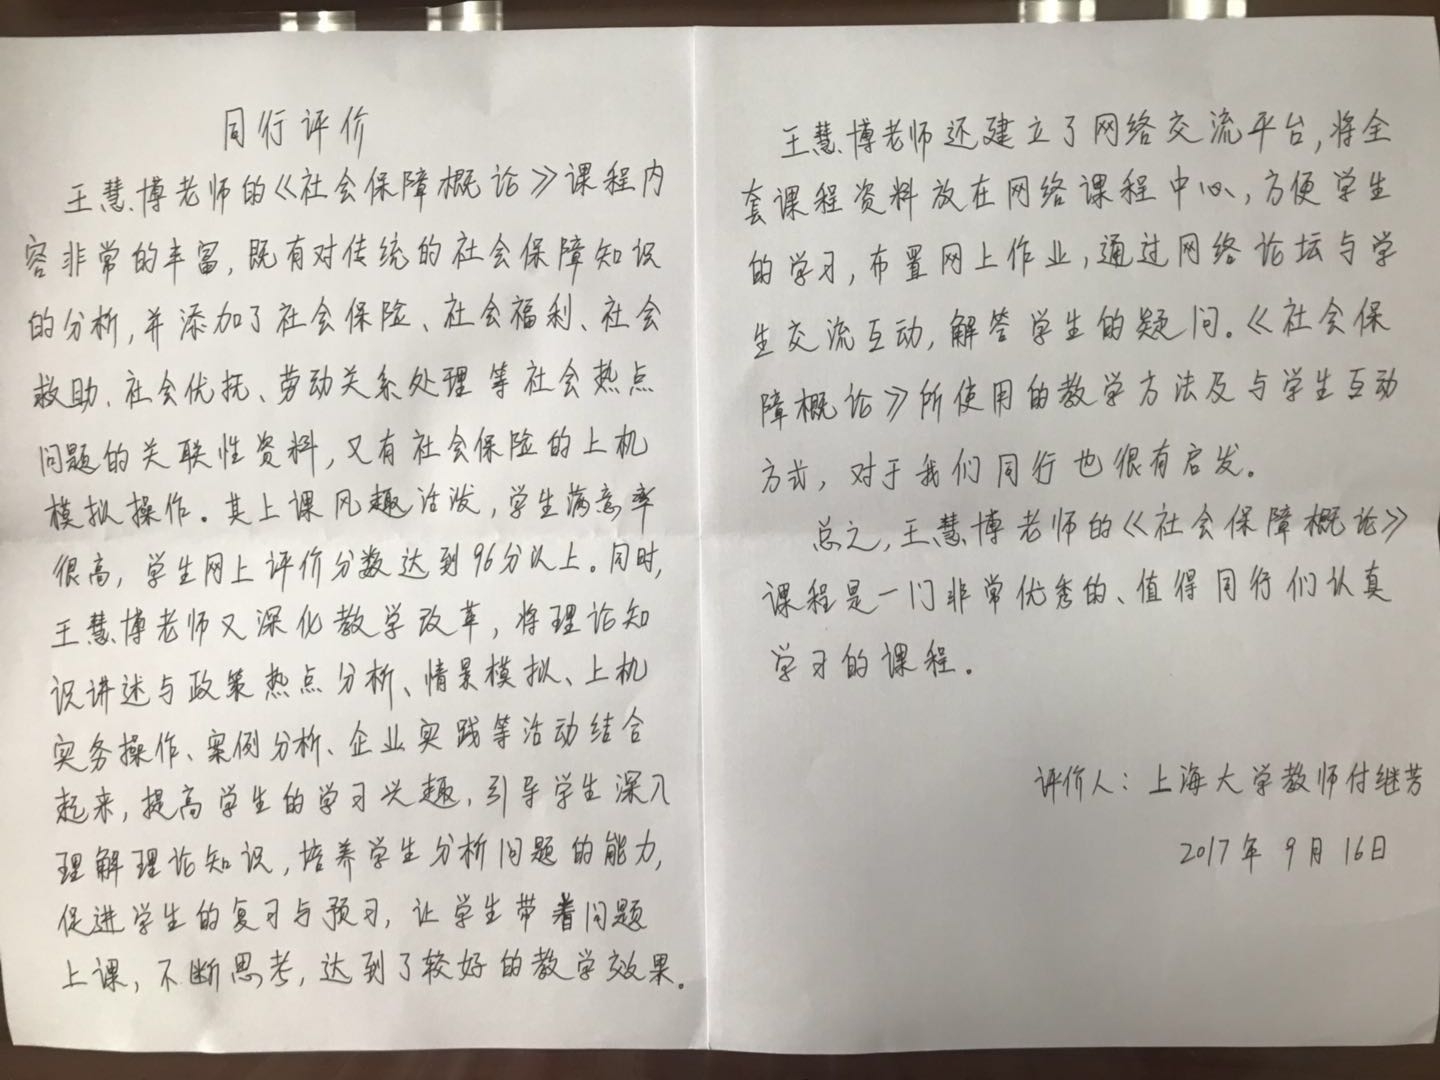 同行评价
王慧博老师的《社会保障概论》课程内
容非常的丰富，既有对传统的社会保障知识
的分析，并添加了社会保险、社会福利、社会
救助、社会优抚、劳动关系处理等社会热点
问题的关联性资料，又有社会保险的上机
模拟操作。其上课风趣活泼，学生满意率
很高，学生网上评价分数达到96分以上。同时，
王慧博老师又深化教学改革，将理论知
识讲述与政策热点分析、情景模拟、上机
实务操作、案例分析、企业实践等活动结合
起来，提高学生的学习兴趣，引导学生深入
理解理论知识，培养学生分析问题的能力，
促进学生的复习与预习，让学生带着问题
上课，不断思考，达到了较好的教学效果。
王慧博老师还建立了网络交流平台，将全
套课程资料放在网络课程中心，方便学生
的学习，布置网上作业，通过网络论坛与学
生交流互动，解答学生的疑问。《社会保
障概论》所使用的教学方法及与学生互动
方式，对于我们同行也很有启发。
总之，王慧博老师的《社会保障概论》
课程是一门非常优秀的、值得同行们认真
学习的课程。
评价人：上海大学教师付继芳
2017年9月16日